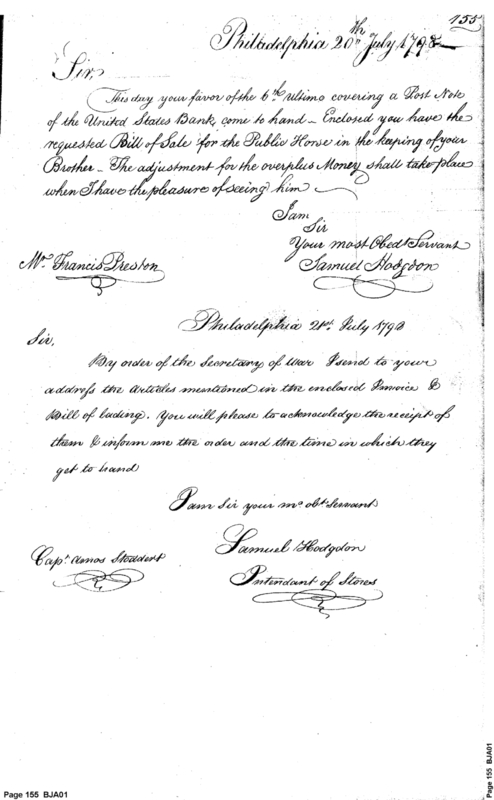 155
Philadelphia 20th July 1798
Sir,
This day your favor of the 6th ultimo covering a Post Note
of the United States Bank, come to hand – Enclosed you have the
requested Bill of Sale for the Public Horse in the keeping of your
Brother – The adjustment for the overplus Money shall take place
when I have the pleasure of seeing him
I am
Sir
Your most Obedt Servant
Mr. Francis Preston
Samuel Hodgdon
Philadelphia 21st July 1798
Sir,
By order of the Secretary of War I send to your
address the articles mentioned in the enclosed Invoice &
Bill of lading. You will please to acknowledge the receipt of
them & inform me the order and the time in which they
get to hand
I am Sir your mo obt Servant
Samuel Hodgdon
Capt. Amos Stoddert
Intendant of Stores
Page 155 BJA01
Page 155 BJA01